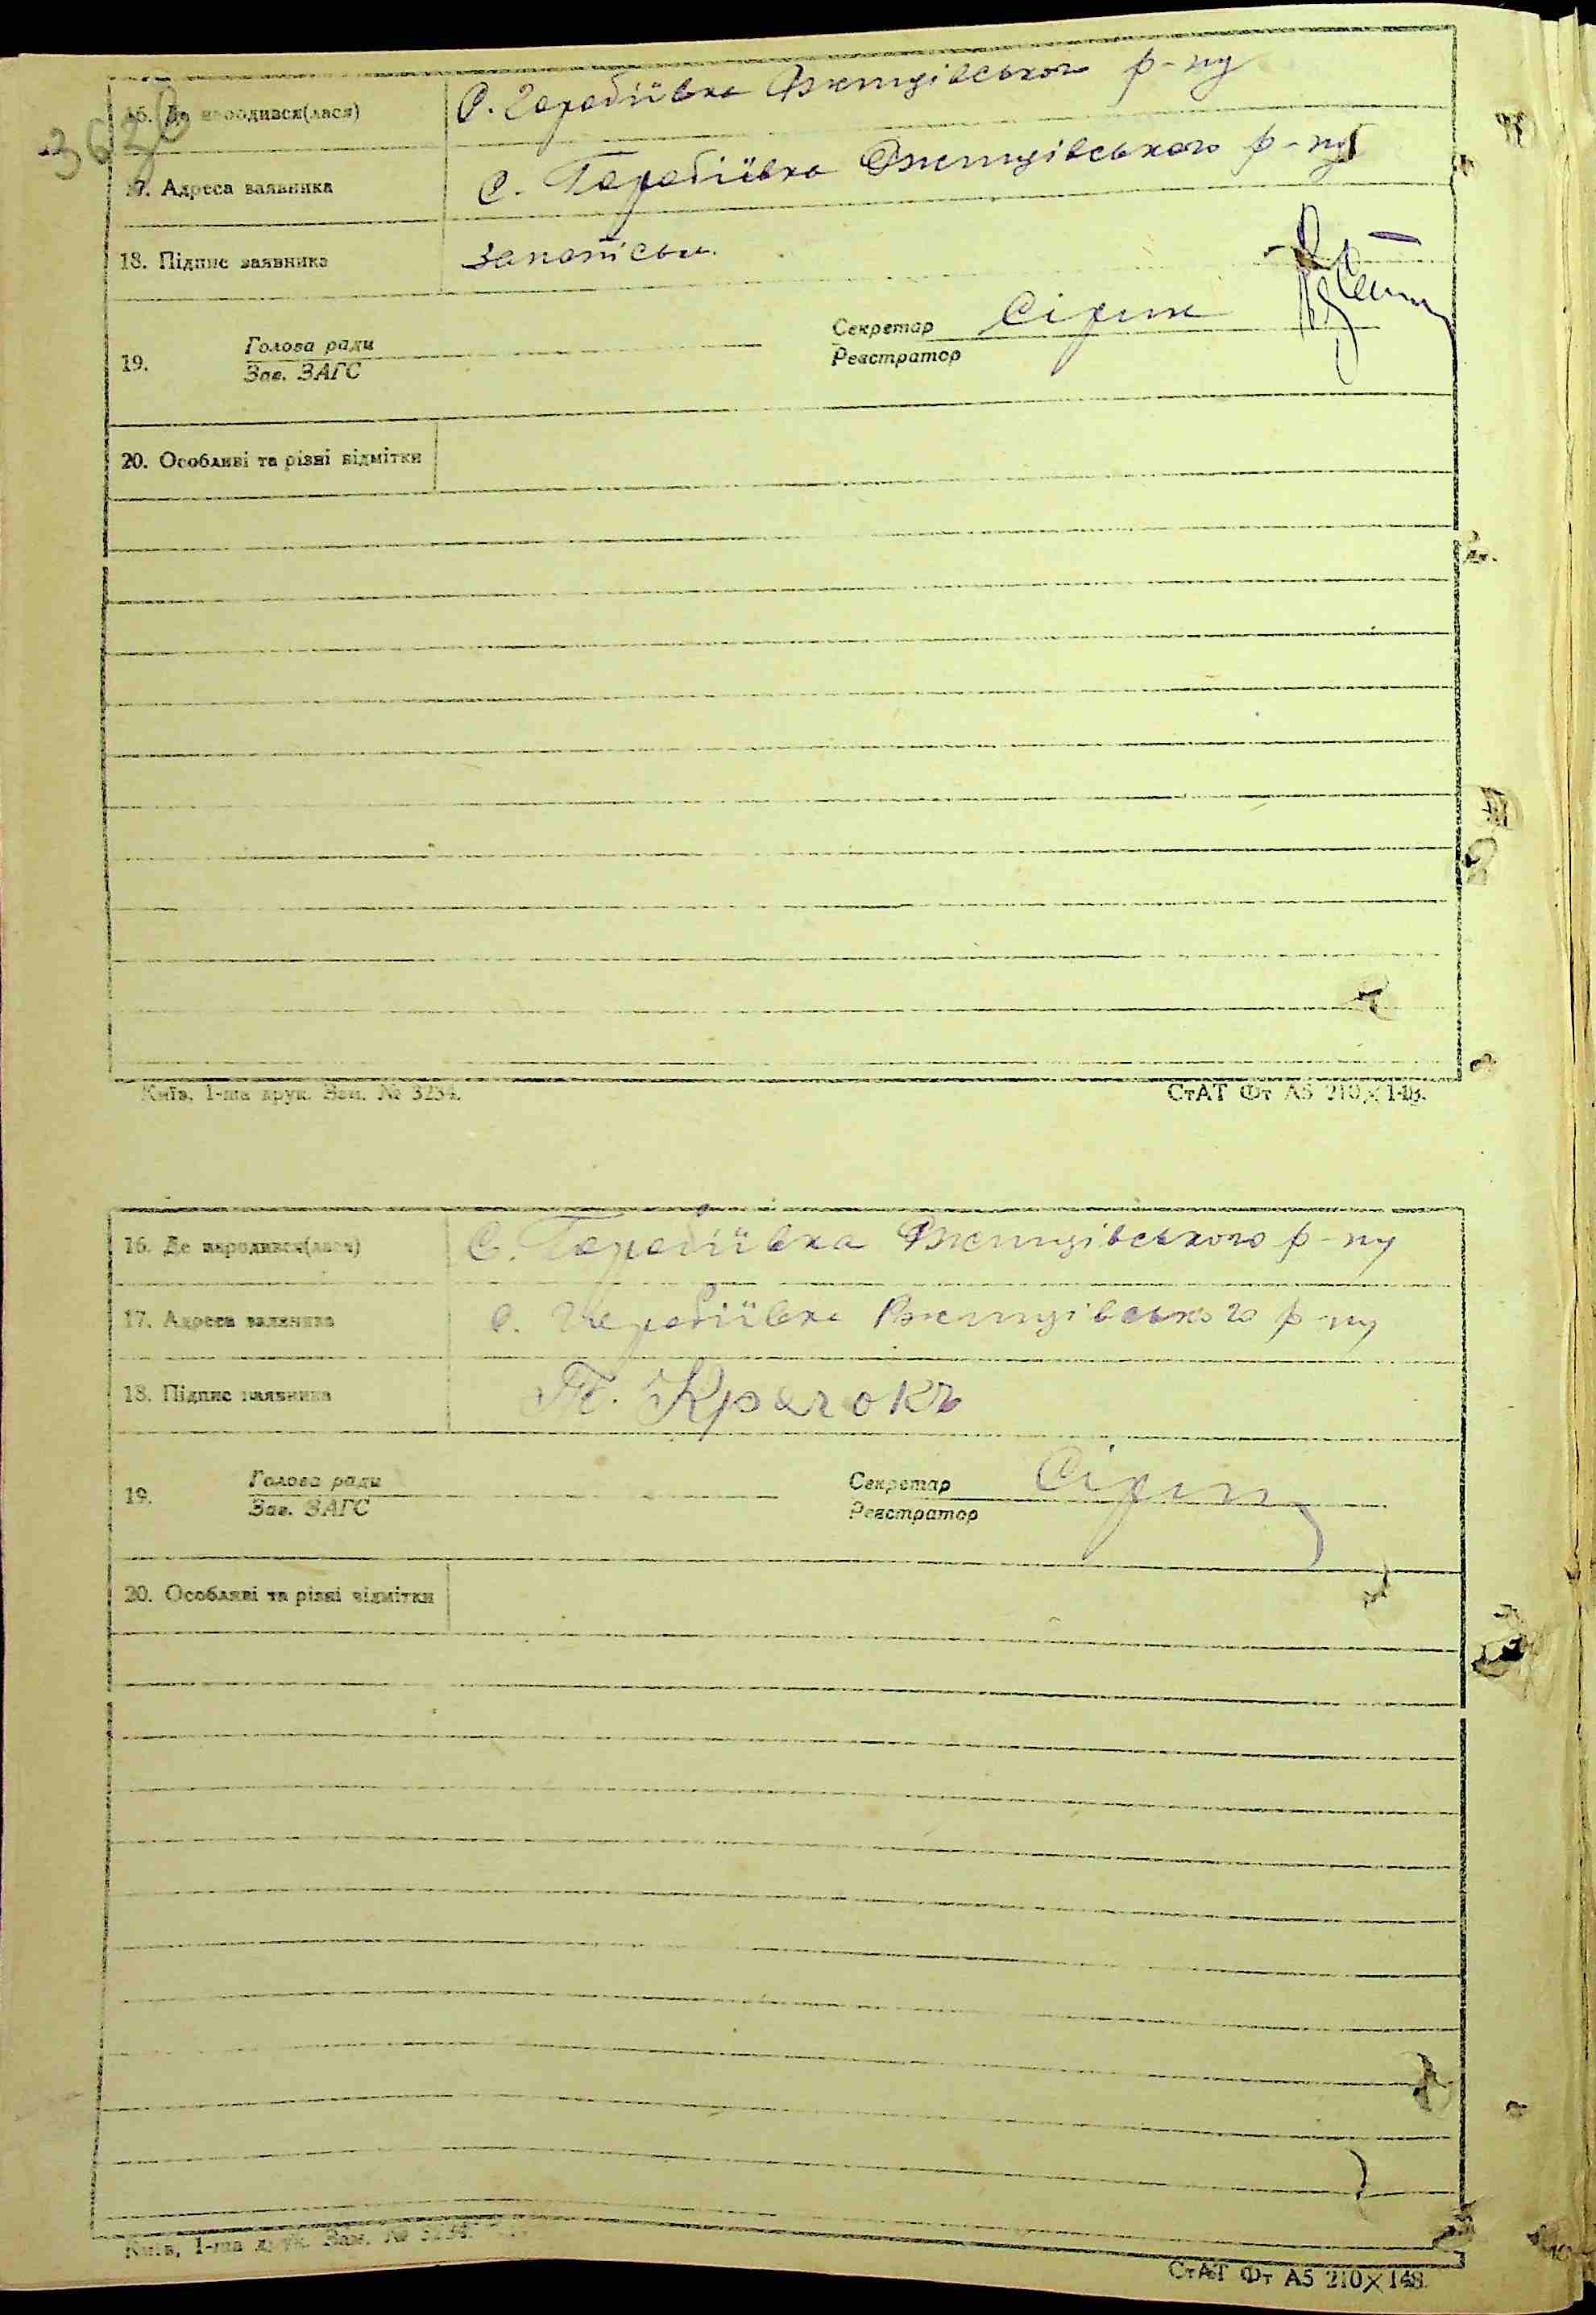 16. Де народився(лася) С. Гарабіївка Ржищівського р-ну
3620
17. Адреса заявника С. Гарабіївка Ржищівського р-ну
18. Підпис заявника
19. Голова ради Секретар Сірик
Зав. ЗАГС Реєстратор
20. Особливі та різні відмітки
Київ, 1-ша друк. Зам. № 3234. СтАТ Фт А5 210×148.
16. Де народився(лася) С. Гарабіївка Ржищівського р-ну
17. Адреса заявника с. Гарабіївка Ржищівського р-ну
18. Підпис заявника
19. Голова ради Секретар Сірик
Зав. ЗАГС Реєстратор
20. Особливі та різні відмітки
Київ, 1-ша друк. Зам. № 3234. СтАТ Фт А5 210×148.